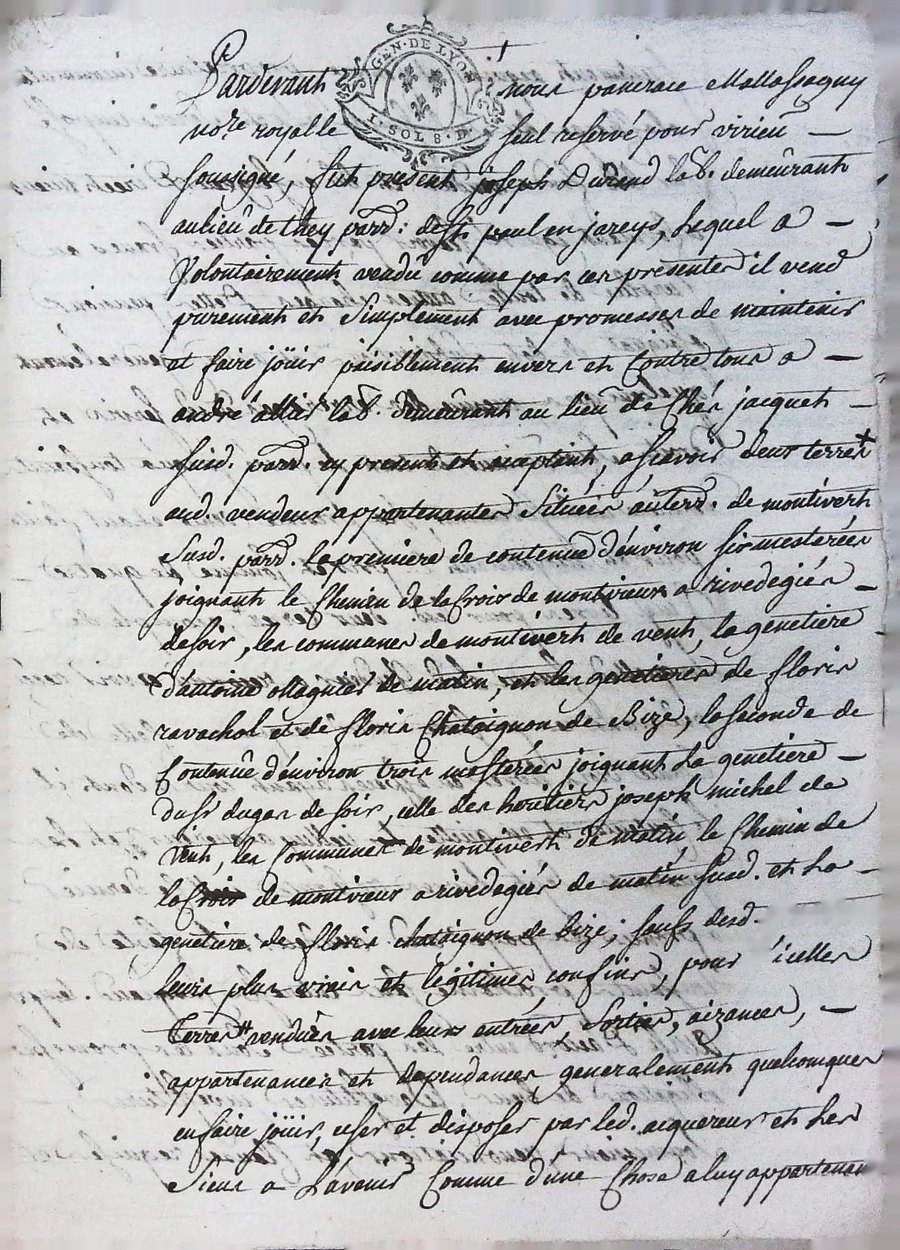 GEN·DE LYON
1·SOL 8·D
Pardevant nous pancrace Mallassagny
no.re royalle seul reservé pour virieu —
soussigné, fut present joseph Durand lab.r demeûrant
au lieû de they parr: de St paul en jareys, Lequel a —
Volontairement vendû comme par ces presentes il vend
purement et Simplement avec promesses de maintenir
et faire joüir paisiblement envers et Contre tous a —
andré allier lab.r demeûrant au lieu de Chés jacquet —
susd. parr. cy present et acceptant, ascavoir deux terres +
aud. vendeur appartenantes Situées au terr. de montivert
Susd. parr. la premiere de contenuë d'environ six mesterées
joignant le Chemin de la Croix de montvieux a rivedegiés —
de soir, les communes de montivert de vent, la genetiere
d'antoine ollagnier de matin, et les genetieres de floris
ravachol et de floris Chataignon de Bize, la seconde de
Contenuë d'environ trois mesterées joignant la genetiere —
du Sr dugas de soir, celle des hoiritiers joseph michel de
vent, les Communes de montivert de matin, le Chemin de
la Croix de montvieux a rivedegiés de matin susd. et la —
genetiere de floris chataignon de bize; saufs desd.
leurs plus vrais et legitimes confins, pour icelles
Terres # vendues avec leurs entrées, Sorties, aizances, —
appartenances et dependances generalement quelconques
en faire joüir, user et disposer par led. aquereur et les
Siens a L'avenir Comme d'une Chose a luy appartenan